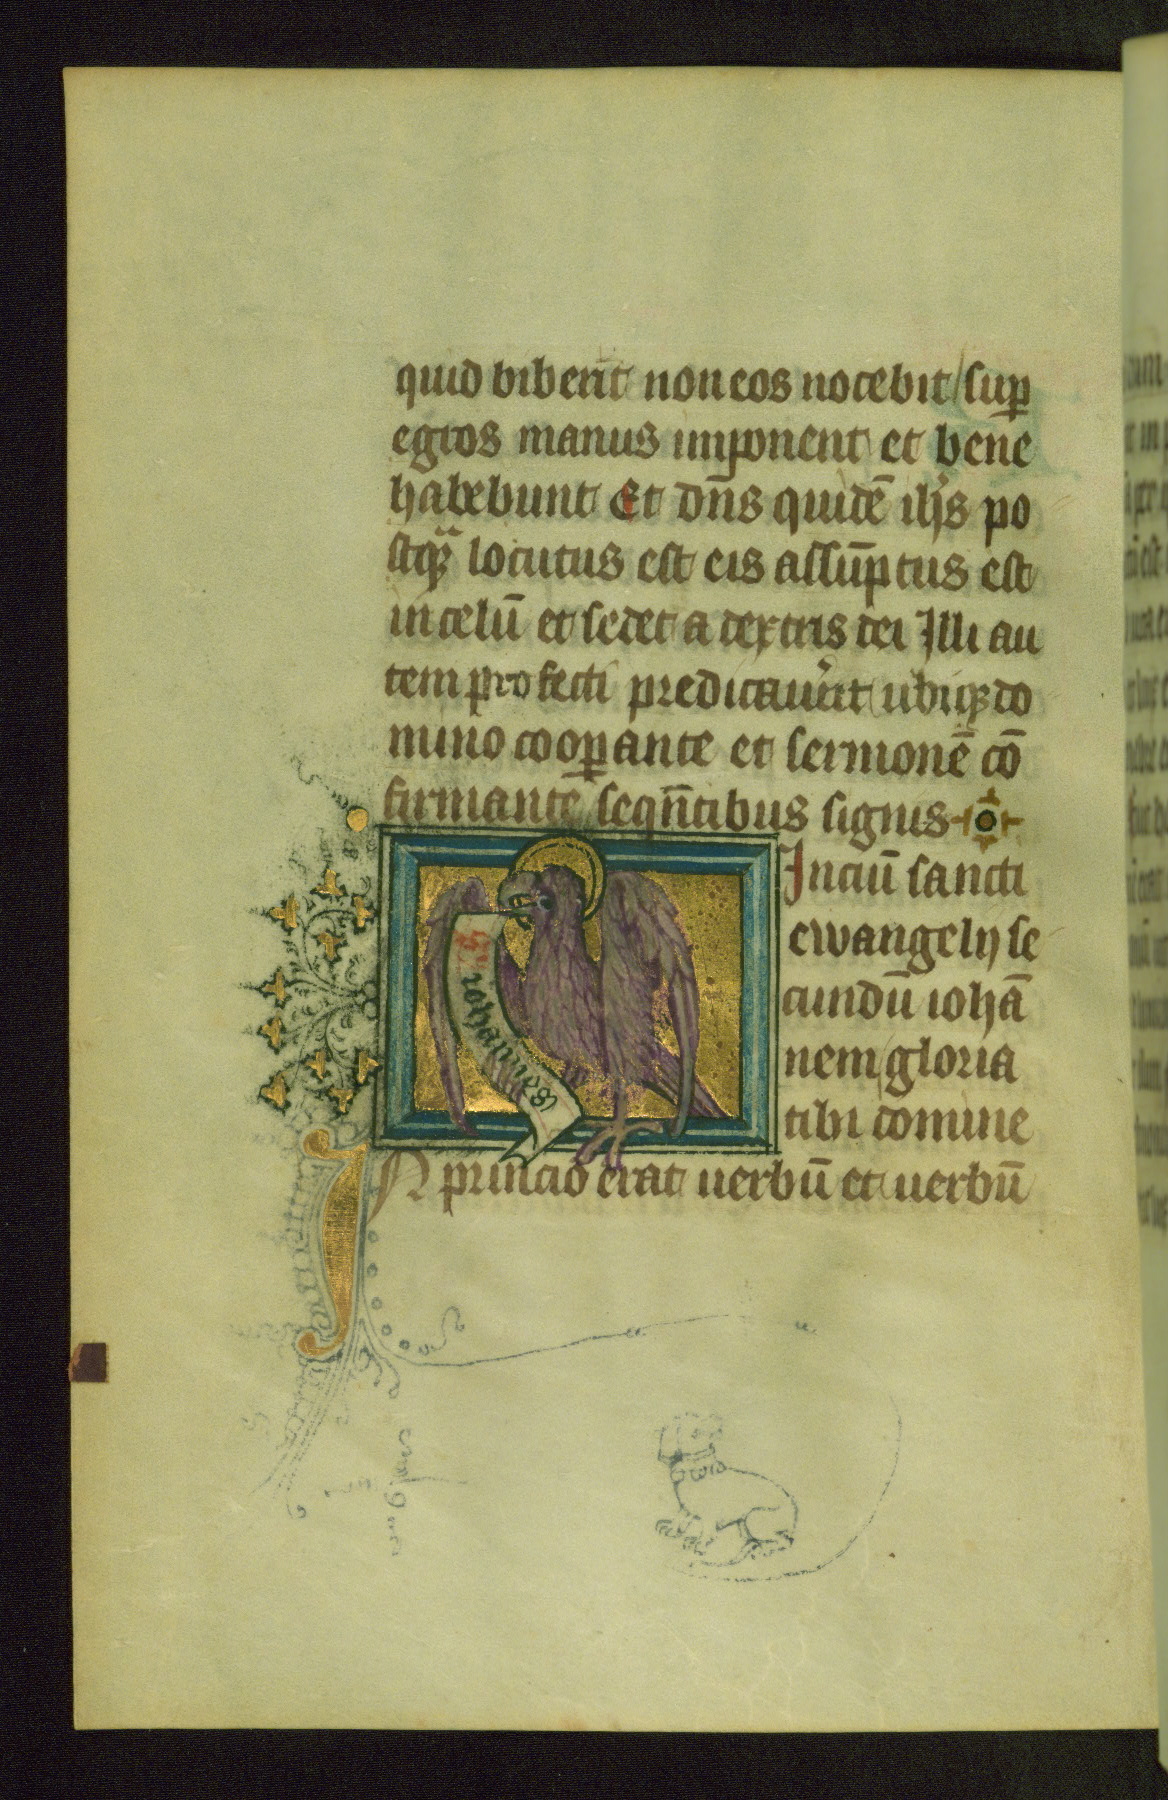 quid biberīt non eos nocebit / suꝑ
egros manus imponent et bene
habebunt Et dn̄s quidē ihs̄ po
stqͣꝫ locutus est eis assūptus est
in celū et sedet a dextris dei Illi au
tem profecti predicauer̄t ubiqꝫ do
mino cooꝑante et sermonē cō
firmante seqn̄tibus signis
Iniciū sancti
ewangelij se
cundū iohā
nem gloria
tibi domine
s iohannes
IN principio erat uerbū et uerbū